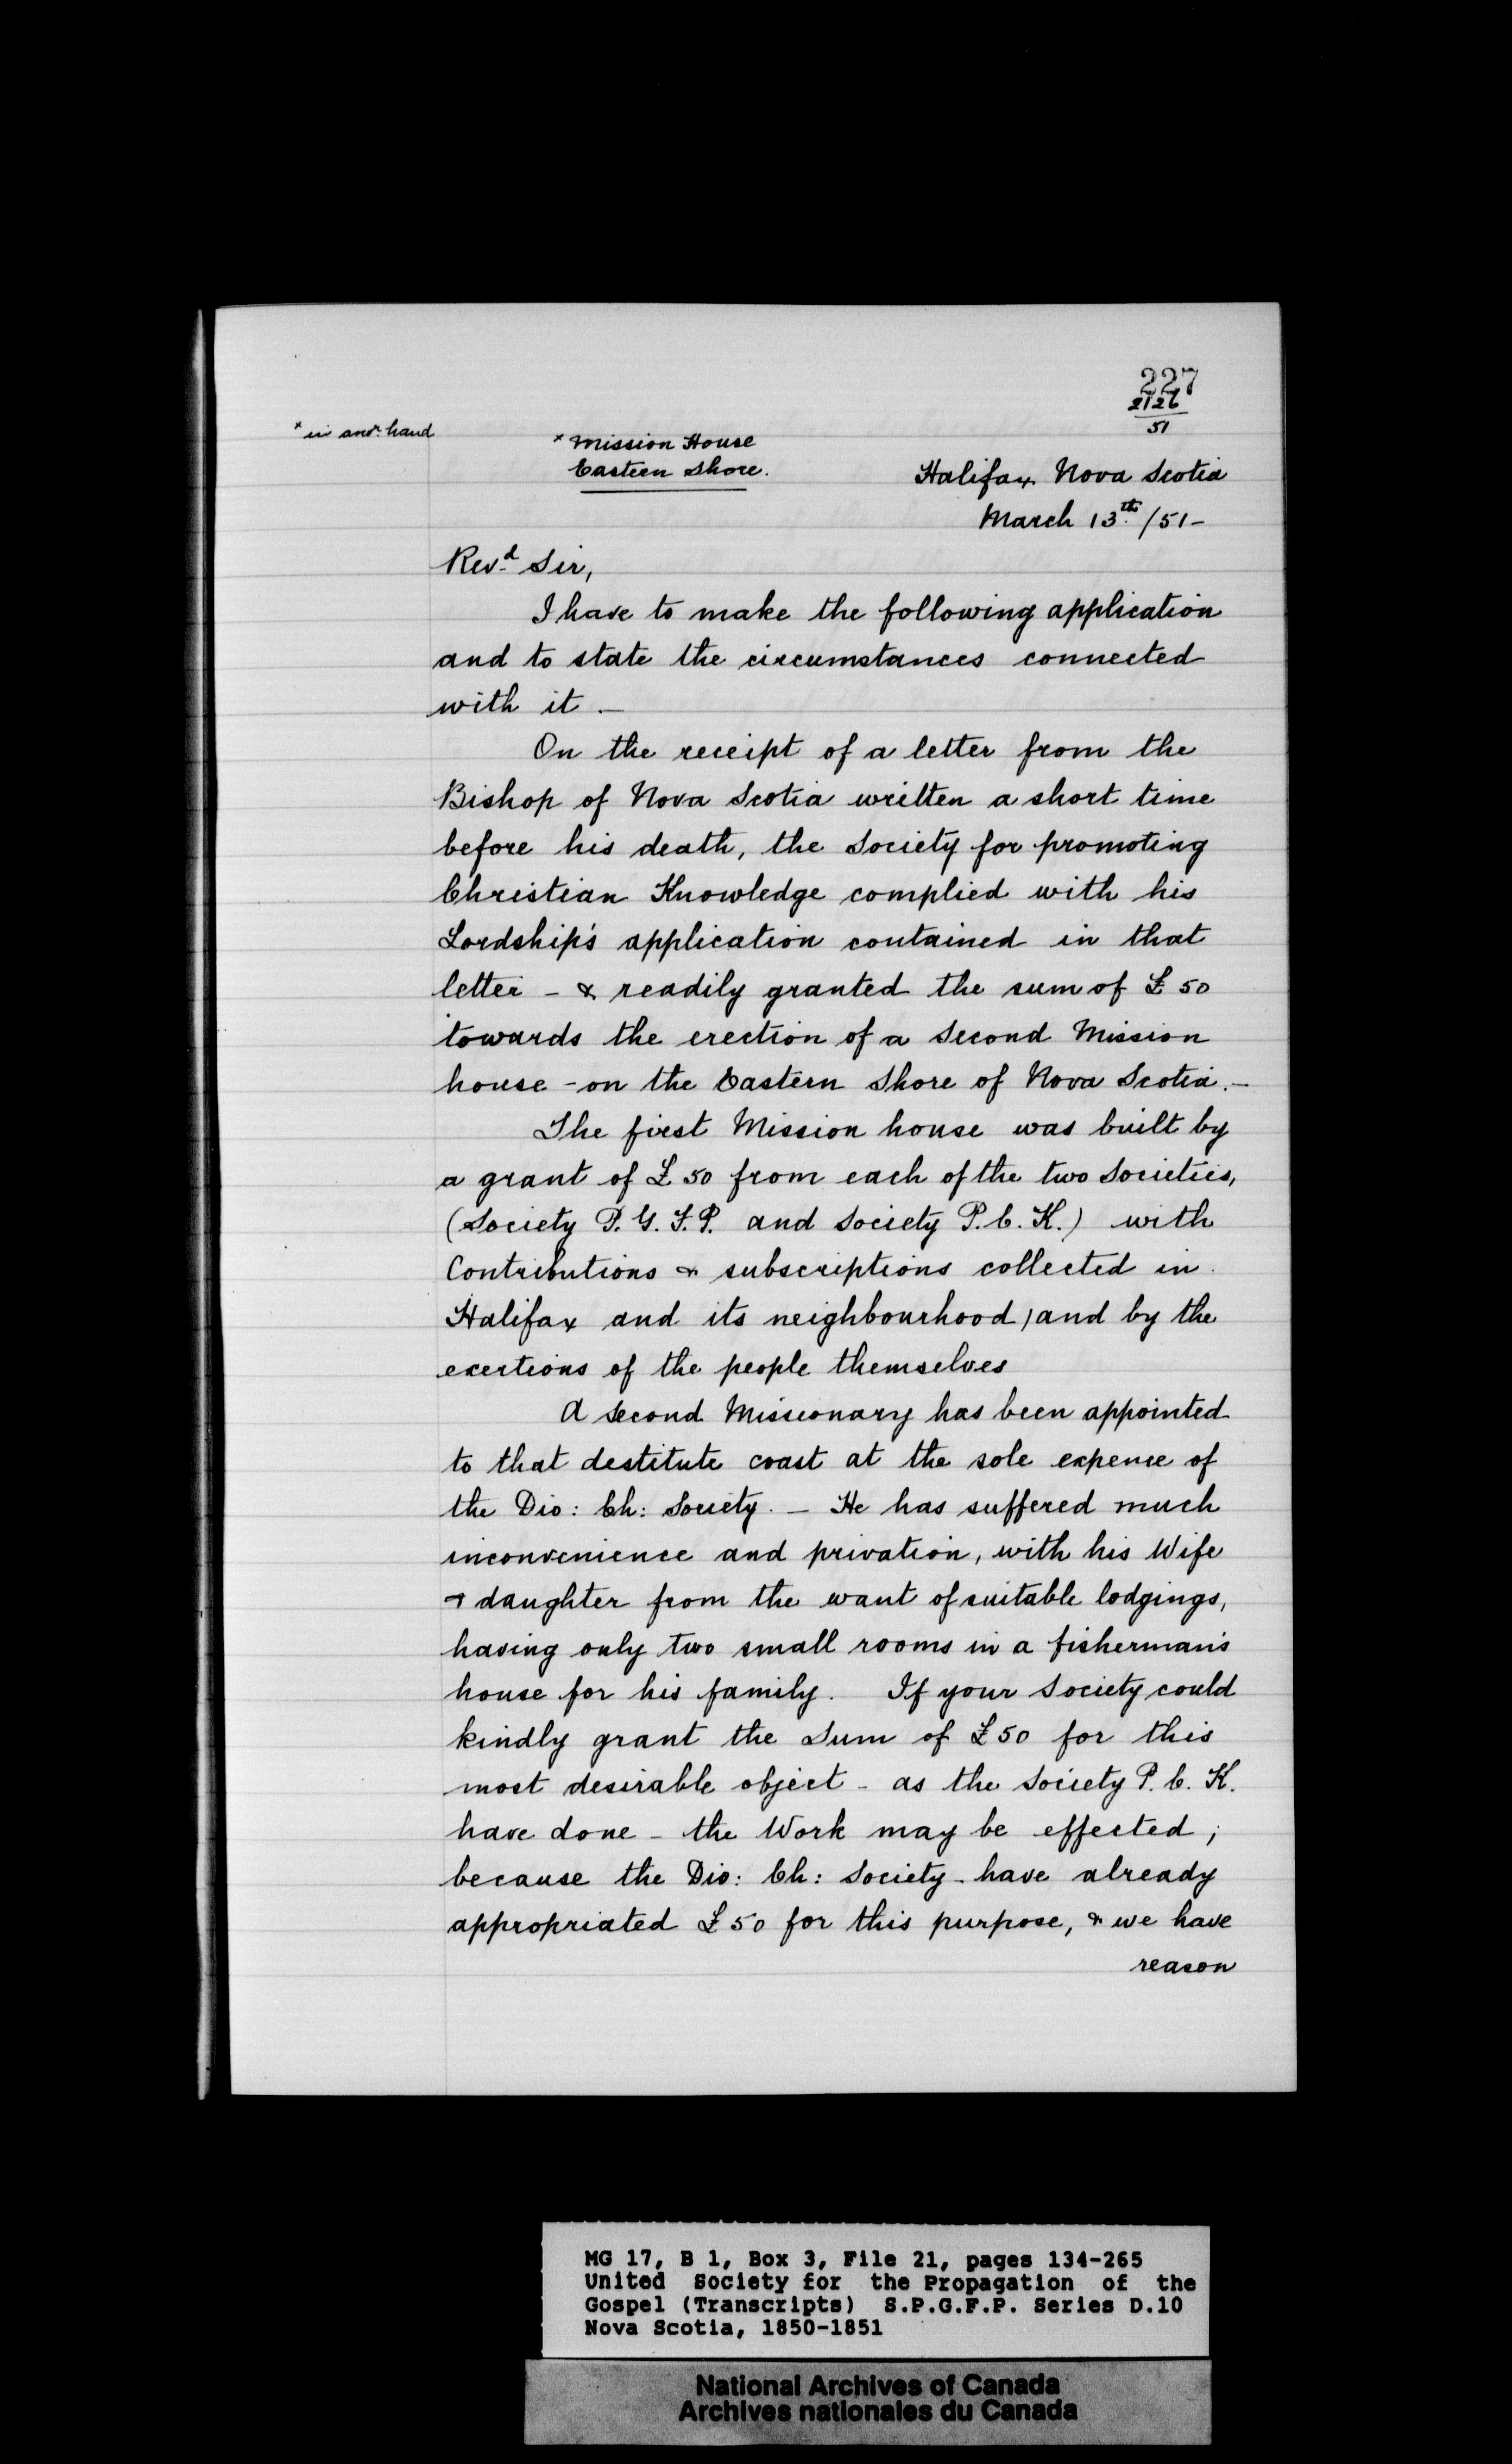 227
2126
51
* in anr. hand
* Mission House
Eastern Shore.
Halifax Nova Scotia
March 13th. /51-
Revd. Sir,
I have to make the following application
and to state the circumstances connected
with it -
On the receipt of a letter from the
Bishop of Nova Scotia written a short time
before his death, the Society for promoting
Christian Knowledge complied with his
Lordship's application contained in that
letter - & readily granted the sum of £50
towards the erection of a Second Mission
house - on the Eastern Shore of Nova Scotia. -
The first Mission house was built by
a grant of £50 from each of the two Societies,
(Society P. G. F. P. and Society P. C. K.) with
Contributions & subscriptions collected in
Halifax and its neighbourhood, and by the
exertions of the people themselves
A second Missionary has been appointed
to that destitute coast at the sole expense of
the Dio: Ch: Society. - He has suffered much
inconvenience and privation, with his Wife
& daughter from the want of suitable lodgings,
having only two small rooms in a fisherman's
house for his family. If your Society could
kindly grant the Sum of £50 for this
most desirable object - as the Society P. C. K.
have done - the Work may be effected;
because the Dio: Ch: Society - have already
appropriated £50 for this purpose, & we have
reason
MG 17, B 1, Box 3, File 21, pages 134-265
United Society for the Propagation of the
Gospel (Transcripts) S.P.G.F.P. Series D.10
Nova Scotia, 1850-1851
National Archives of Canada
Archives nationales du Canada